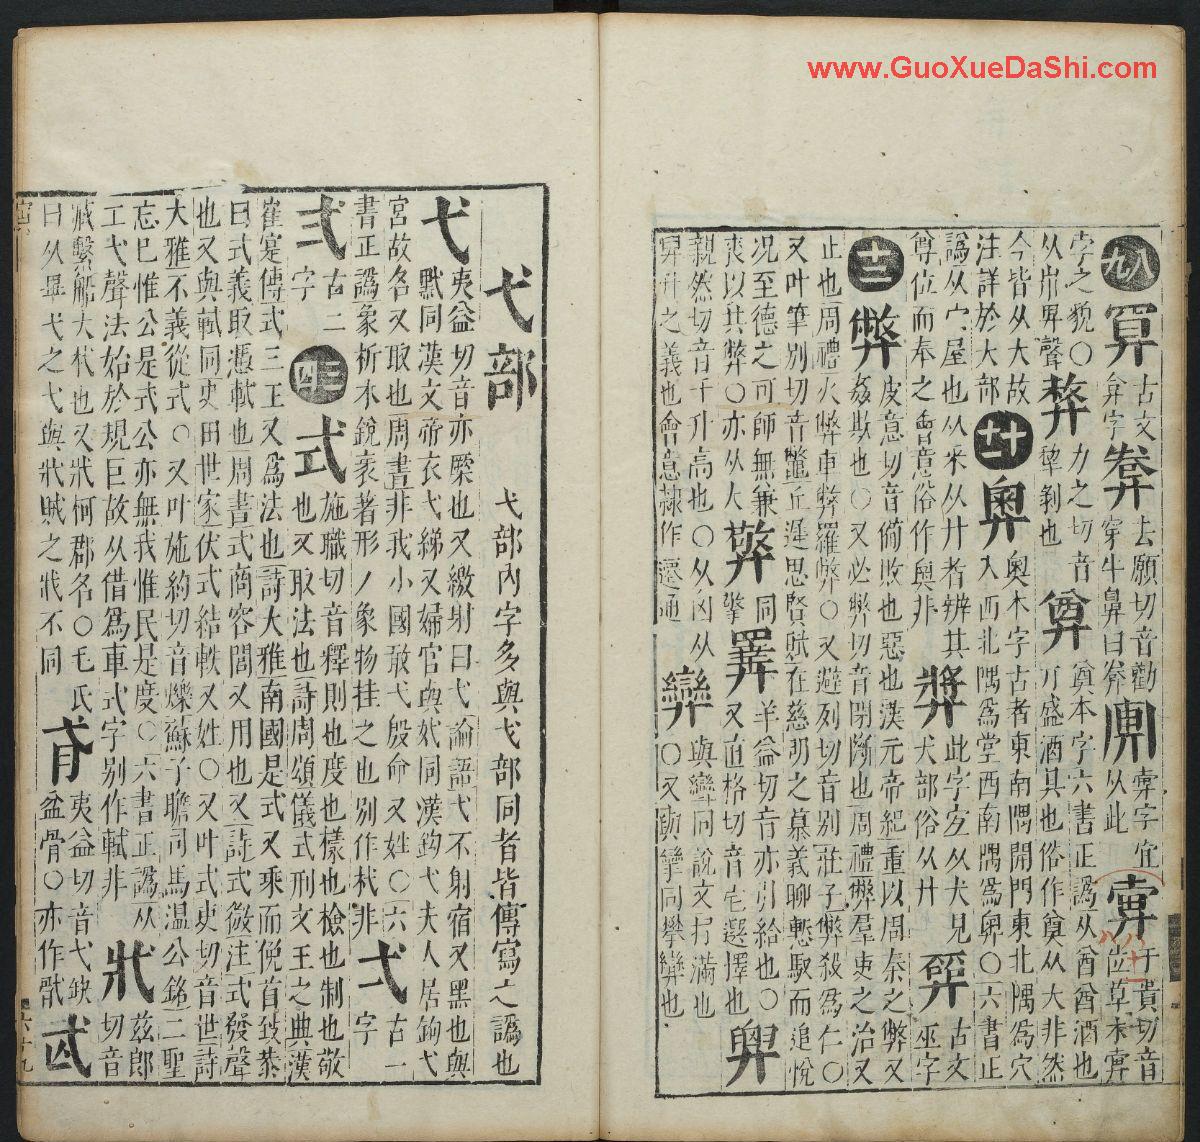 www.GuoXueDaShi.com
八九 㝠 古文
弇字 去願切音勸
穿牛鼻曰 𢍏字宜
从此 于貴切音
位草木𢍏
孛之貌〇 力之切音
犂剝也 奠本字六書正譌从酋酋酒也
从岸畀聲 丌盛酒具也俗作奠从大非然
今皆从大故
注詳於大部 十十一 奧 奧本字古者東南隅開門東北隅爲穴
入西北隅爲堂西南隅爲奧〇六書正
譌从宀屋也从釆从廾者辨其 此字宜从犬見
犬部俗从廾 古文
巫字
尊位而奉之會意俗作奧非
十二 弊 皮意切音備敗也惡也漢元帝紀重以周秦之弊又
姦欺也〇又必弊切音閉斷也周禮弊羣吏之治又
止也周禮火弊車弊羅弊〇又避列切音別莊子弊殺爲仁〇
又叶筆別切音鷩丘遲思賢賦在慈明之慕義聊慙馭而追悅
况至德之可師無兼 同
擎 羊益切音亦引給也〇
又直格切音宅選擇也
爽以其弊〇亦从大
親然切音千升高也〇从囟从 與 同說文 滿也
〇又 攣同攀 也
舁升之義也會意隸作䙴通
弋部 弋部內字多與戈部同者皆傳寫之譌也
弋 夷益切音亦橜也又繳射曰弋論語弋不射宿又黑也與
默同漢文帝衣弋綈又婦官與妷同漢鉤弋夫人居鉤弋
宮故名又取也周書非我小國敢弋殷命又姓〇六
書正譌象析木銳衺著形丿象物挂之也別作杙非 弌 古一
字
弍 古二
字 三四 式 施職切音釋則也度也樣也檢也制也敬
也又取法也詩周頌儀式刑文王之典漢
崔寔傳式三王又爲法也詩大雅南國是式又乘而俛首致恭
曰式義取憑軾也周書式商容閭又用也又詩式微注式發聲
也又與軾同史田世家伏式結軼又姓〇又叶式吏切音世詩
大雅不義從式〇又叶施約切音爍蘇子瞻司馬溫公銘二聖
忘巳惟公是式公亦無我惟民是度〇六書正譌从
工弋聲法始於規巨故从借爲車式字別作軾非 㦳 茲郎
切音
臧繫船大杙也又㦳柯郡名〇毛氏
曰从畢弋之弋與戕賊之戕不同 夷益切音弋缺
盆骨〇亦作
六十九